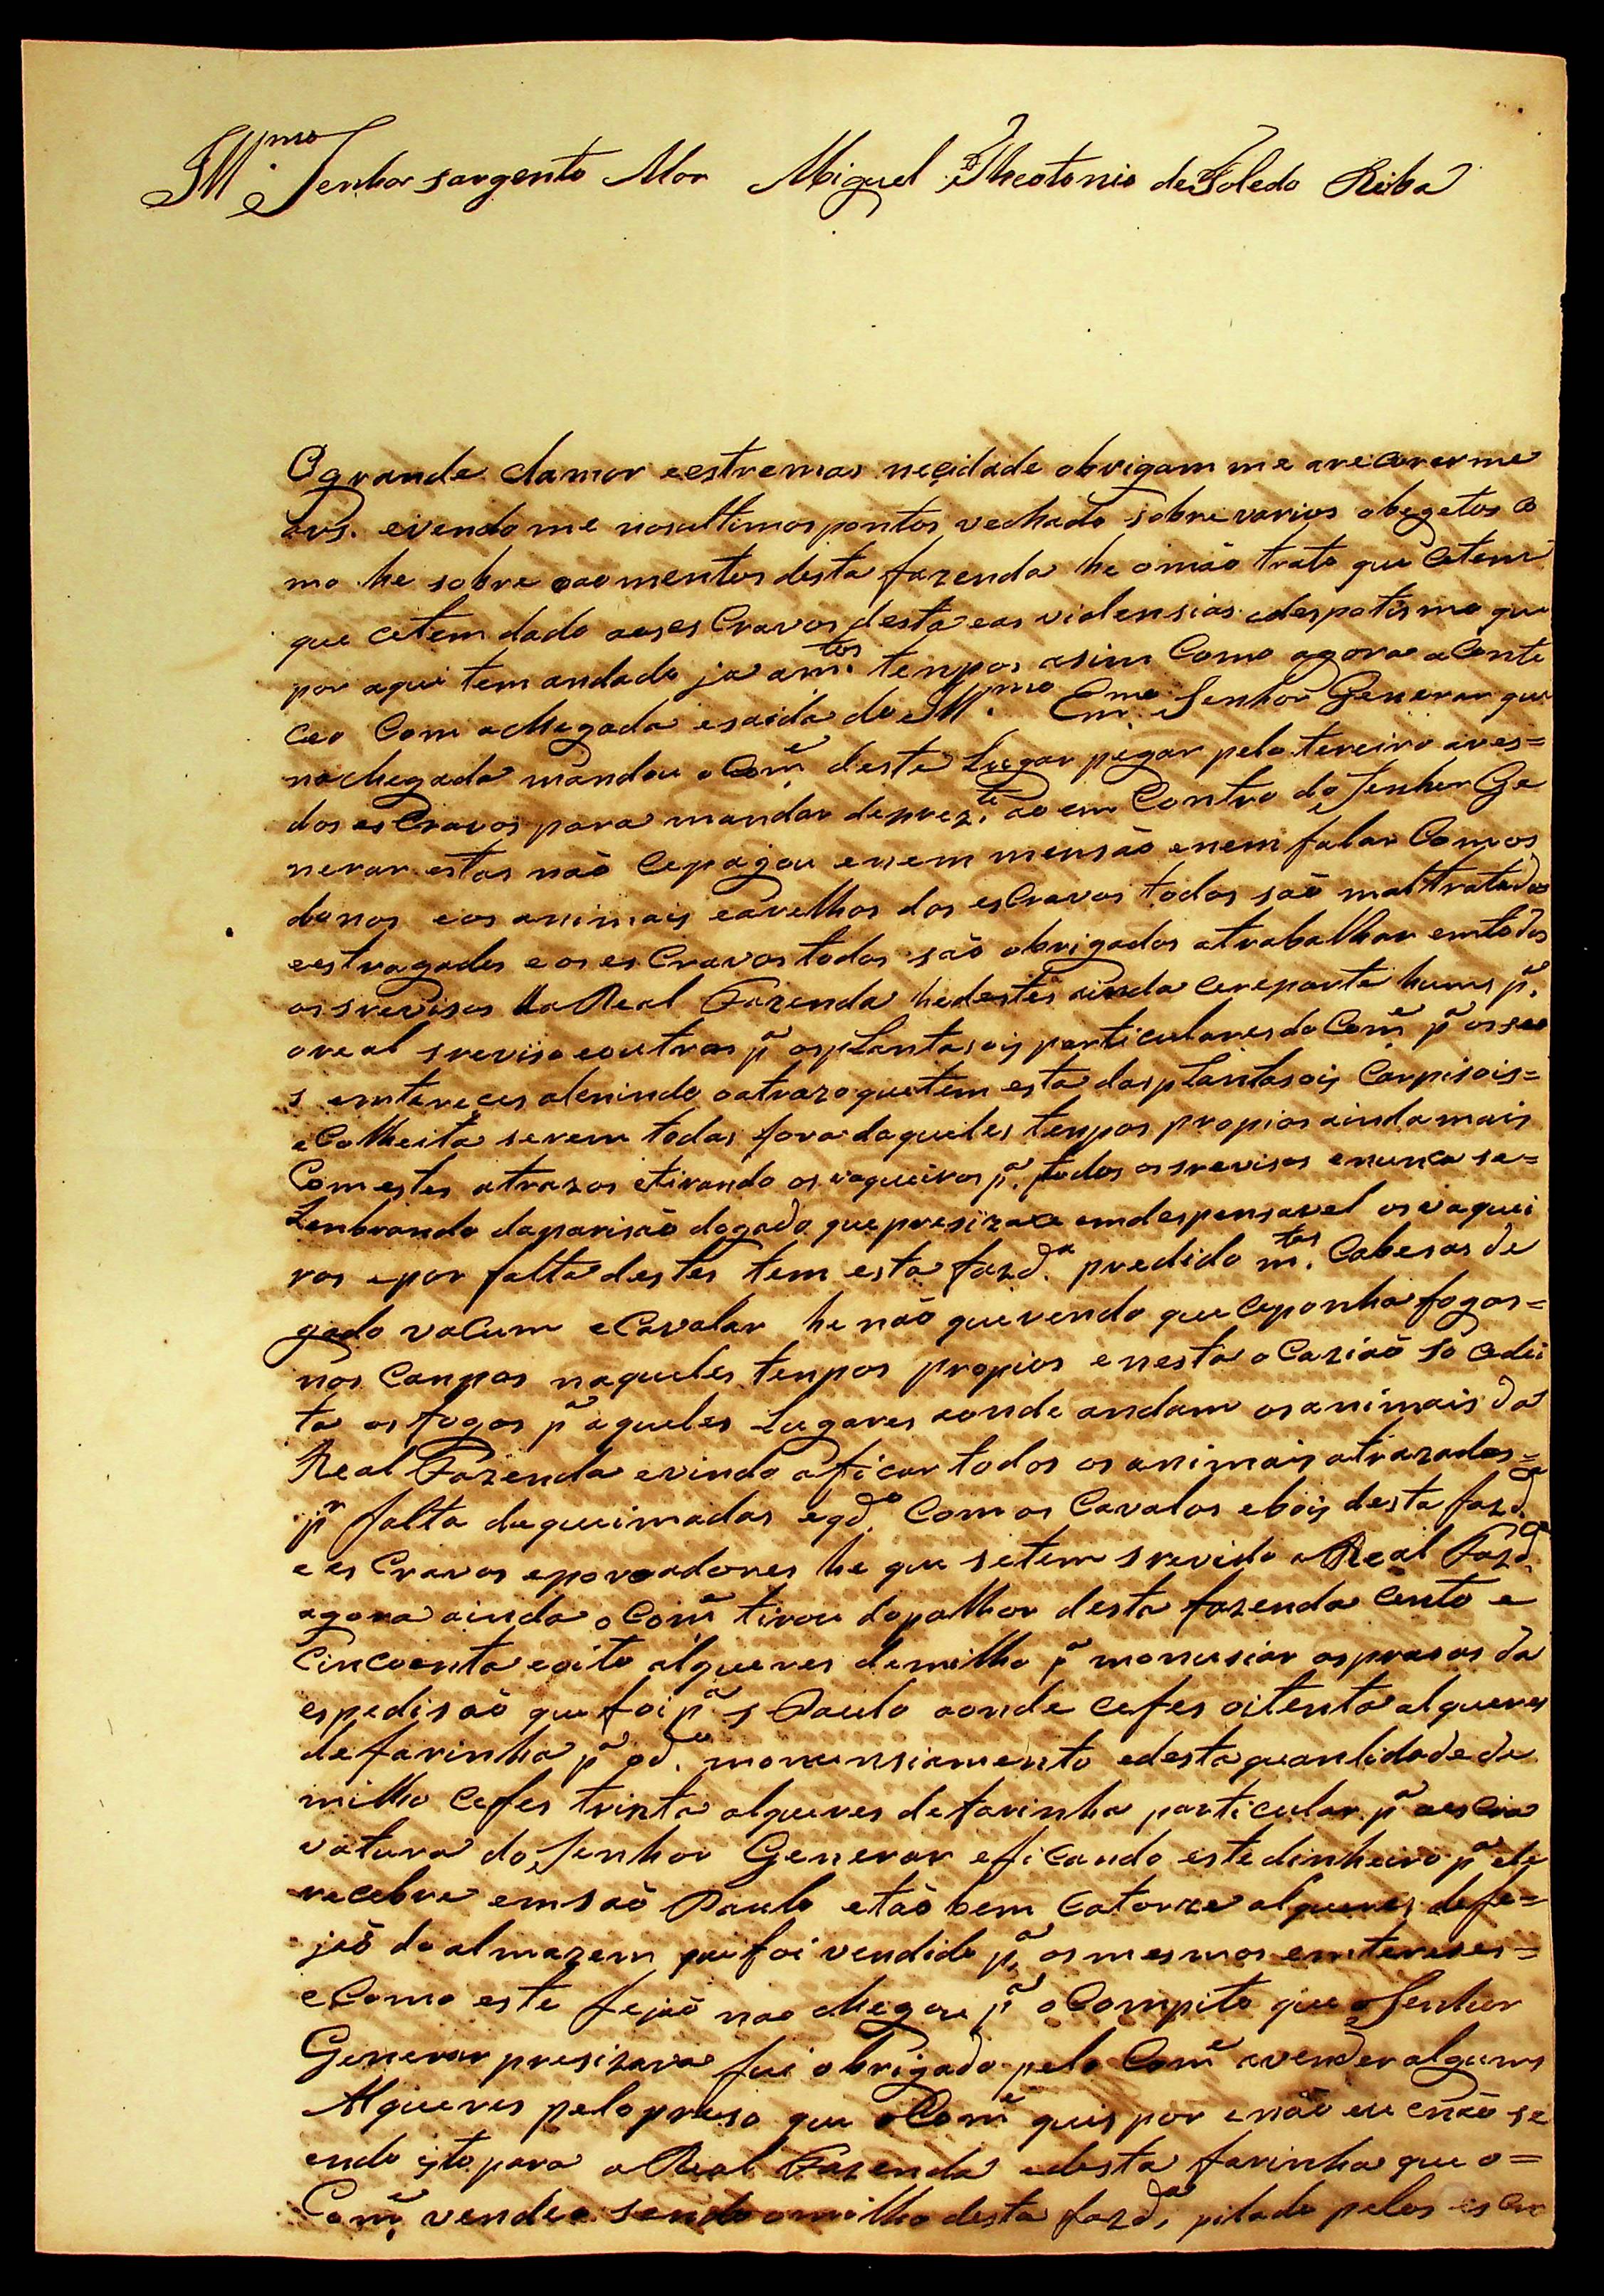 Ill.mo Senhor sargento Mor Miguel Theotonio de Toledo Riba
O grande clamor eestremas neçidade obrigam me arecorerme
avs. evendo me nosultimos pontos vechado sobre varios obegetos Co
mo he sobre oaomentos desta fazenda he omáo trato que Cetem
que cetem dado aoses Cravos desta eas violensias edespotismo que
por aqui tem andado ja am.tos tenpos asim Como agora aConte
ceo Com achegada esaida do Ill.mo Em.mo Senhor Generar que
nachegada mandou o Com.e deste Lugar pegar pelo terceiro aves=
dos esCravos para mandar deprez.te ao em Contro do Senhor Ge
nerar estas não Cepagou enem mensão enem falar Com os
donos eos animais eavelhos dos esCravos todos são maltratados
eestragados eos es Cravos todos são obrigados atrabalhar emtodos
os srevisos da Real Fazenda hedestes ainda Cereparte huns p.a
oreal sreviso eoutros p.a asplantasois particulares do Com.e p.a os seo
s emtereçes alenindo oatrazo quetem esta dasplantasois Carpisois=
eColheita serem todas fora daqueles tenpos propios aindamais
Com estes atrazos etirando osvaqueiros p.a todos os srevisos enunca se=
Lenbrando daparisão dogado que presizava emdespensavel osvaquei
ros epor falta destes tem esta fazd.a predido m.tas Cabesas de
gado vaCum eCavalar he não quevendo que Ceponha fogos=
nos Canpos naqueles tenpos propios enesta oCazião só Cedei
ta os fogos p.a aqueles Lugares aonde andam osanimais da
Real Fazenda evindo aficar todos os animais atrazados=
p.r falta dequeimadas eqd.o Com os Cavalos ebois desta fazd.a
e es Cravos epovoadores he que setem srevido a Real Fazd.a
agora ainda o Com.e tirou dopalhor desta fazenda Cento e
Cincoenta eoito alqueres demilho p.a monusiar asprasas da
espedisão que foi p.a s Paulo aonde cefes oitenta alqueres
defarinha p.a od.o monunsiamento edesta quantidade de
milho Cefes trinta alqueres defarinha particular p.a aesCra
vatura do Senhor Generar eficando estedinheiro p.a ele
recebre emsão Paulo etãobem Catorze alqueres defe=
jão do almazem que foi vendido p.a os mesmos emtereses=
eComo este fejão nao chegou p.a oCompito que o Senhor
Generar presizava fui obrigado pelo Com.e avender alguns
Alqueres pelopreso que o Com.e quis por enão eu enão se
endo isto para a Real Fazenda edesta farinha que o=
Com.e vendeo sendo omilho desta fazd.a pilado pelos es Cra